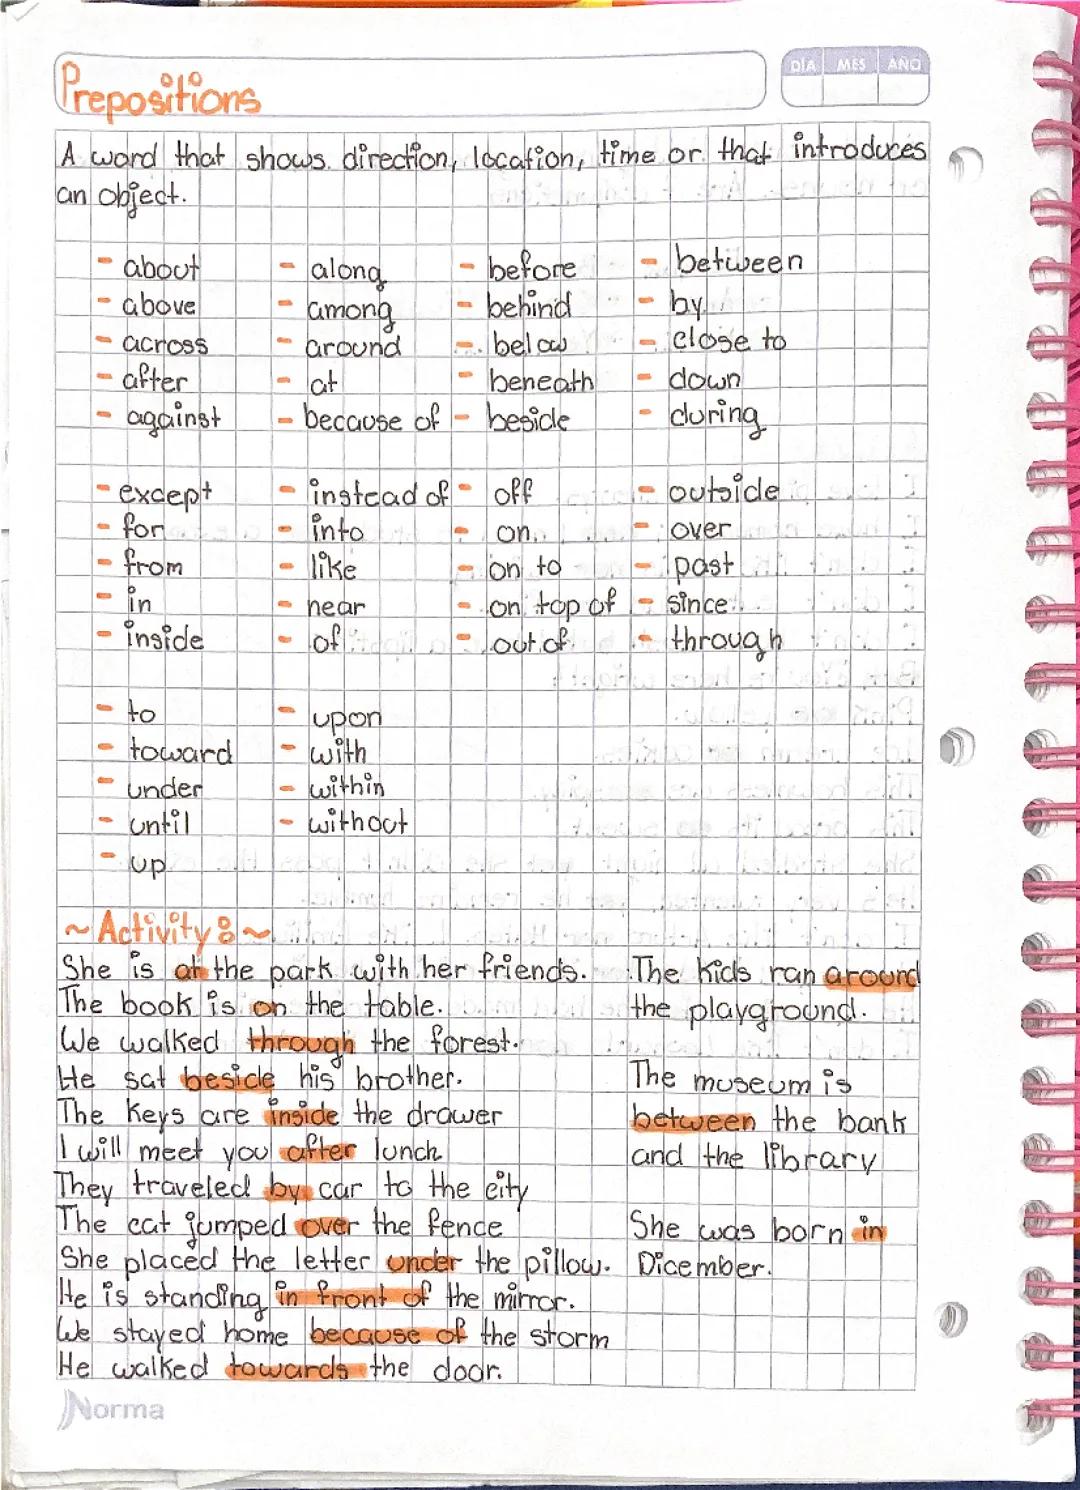 Prepositions
DÍA MES AÑO
A word that shows direction, location, time or that introduces
an object.
- about - along - before - between
- above - among - behind - by
- across - around - below - close to
- after - at - beneath - down
- against - because of - beside - during
- except - instead of - off - outside
- for - into - on - over
- from - like - on to - past
- in - near - on top of - since
- inside - of - out of - through
- to - upon
- toward - with
- under - within
- until - without
- up
~ Activity: ~
She is at the park with her friends.
The book is on the table.
We walked through the forest.
He sat beside his brother.
The keys are inside the drawer
I will meet you after lunch
They traveled by car to the city
The cat jumped over the fence
She placed the letter under the pillow.
He is standing in front of the mirror.
We stayed home because of the storm
He walked towards the door.
The kids ran around
the playground.
The museum is
between the bank
and the library
She was born in
Dicember.
Norma